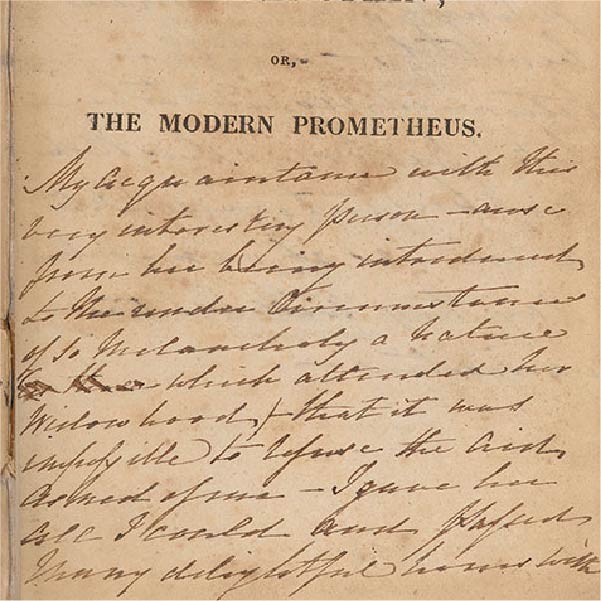 OR,
THE MODERN PROMETHEUS.
My acquaintance with this
very interesting person – arose
from her being introduced
to me under Circumstances
of so Melancholy a Nature
which attended her
Widowhood / that it was
impossible to refuse the aid
asked of me – I gave her
all I could and passed
many delightful hours with